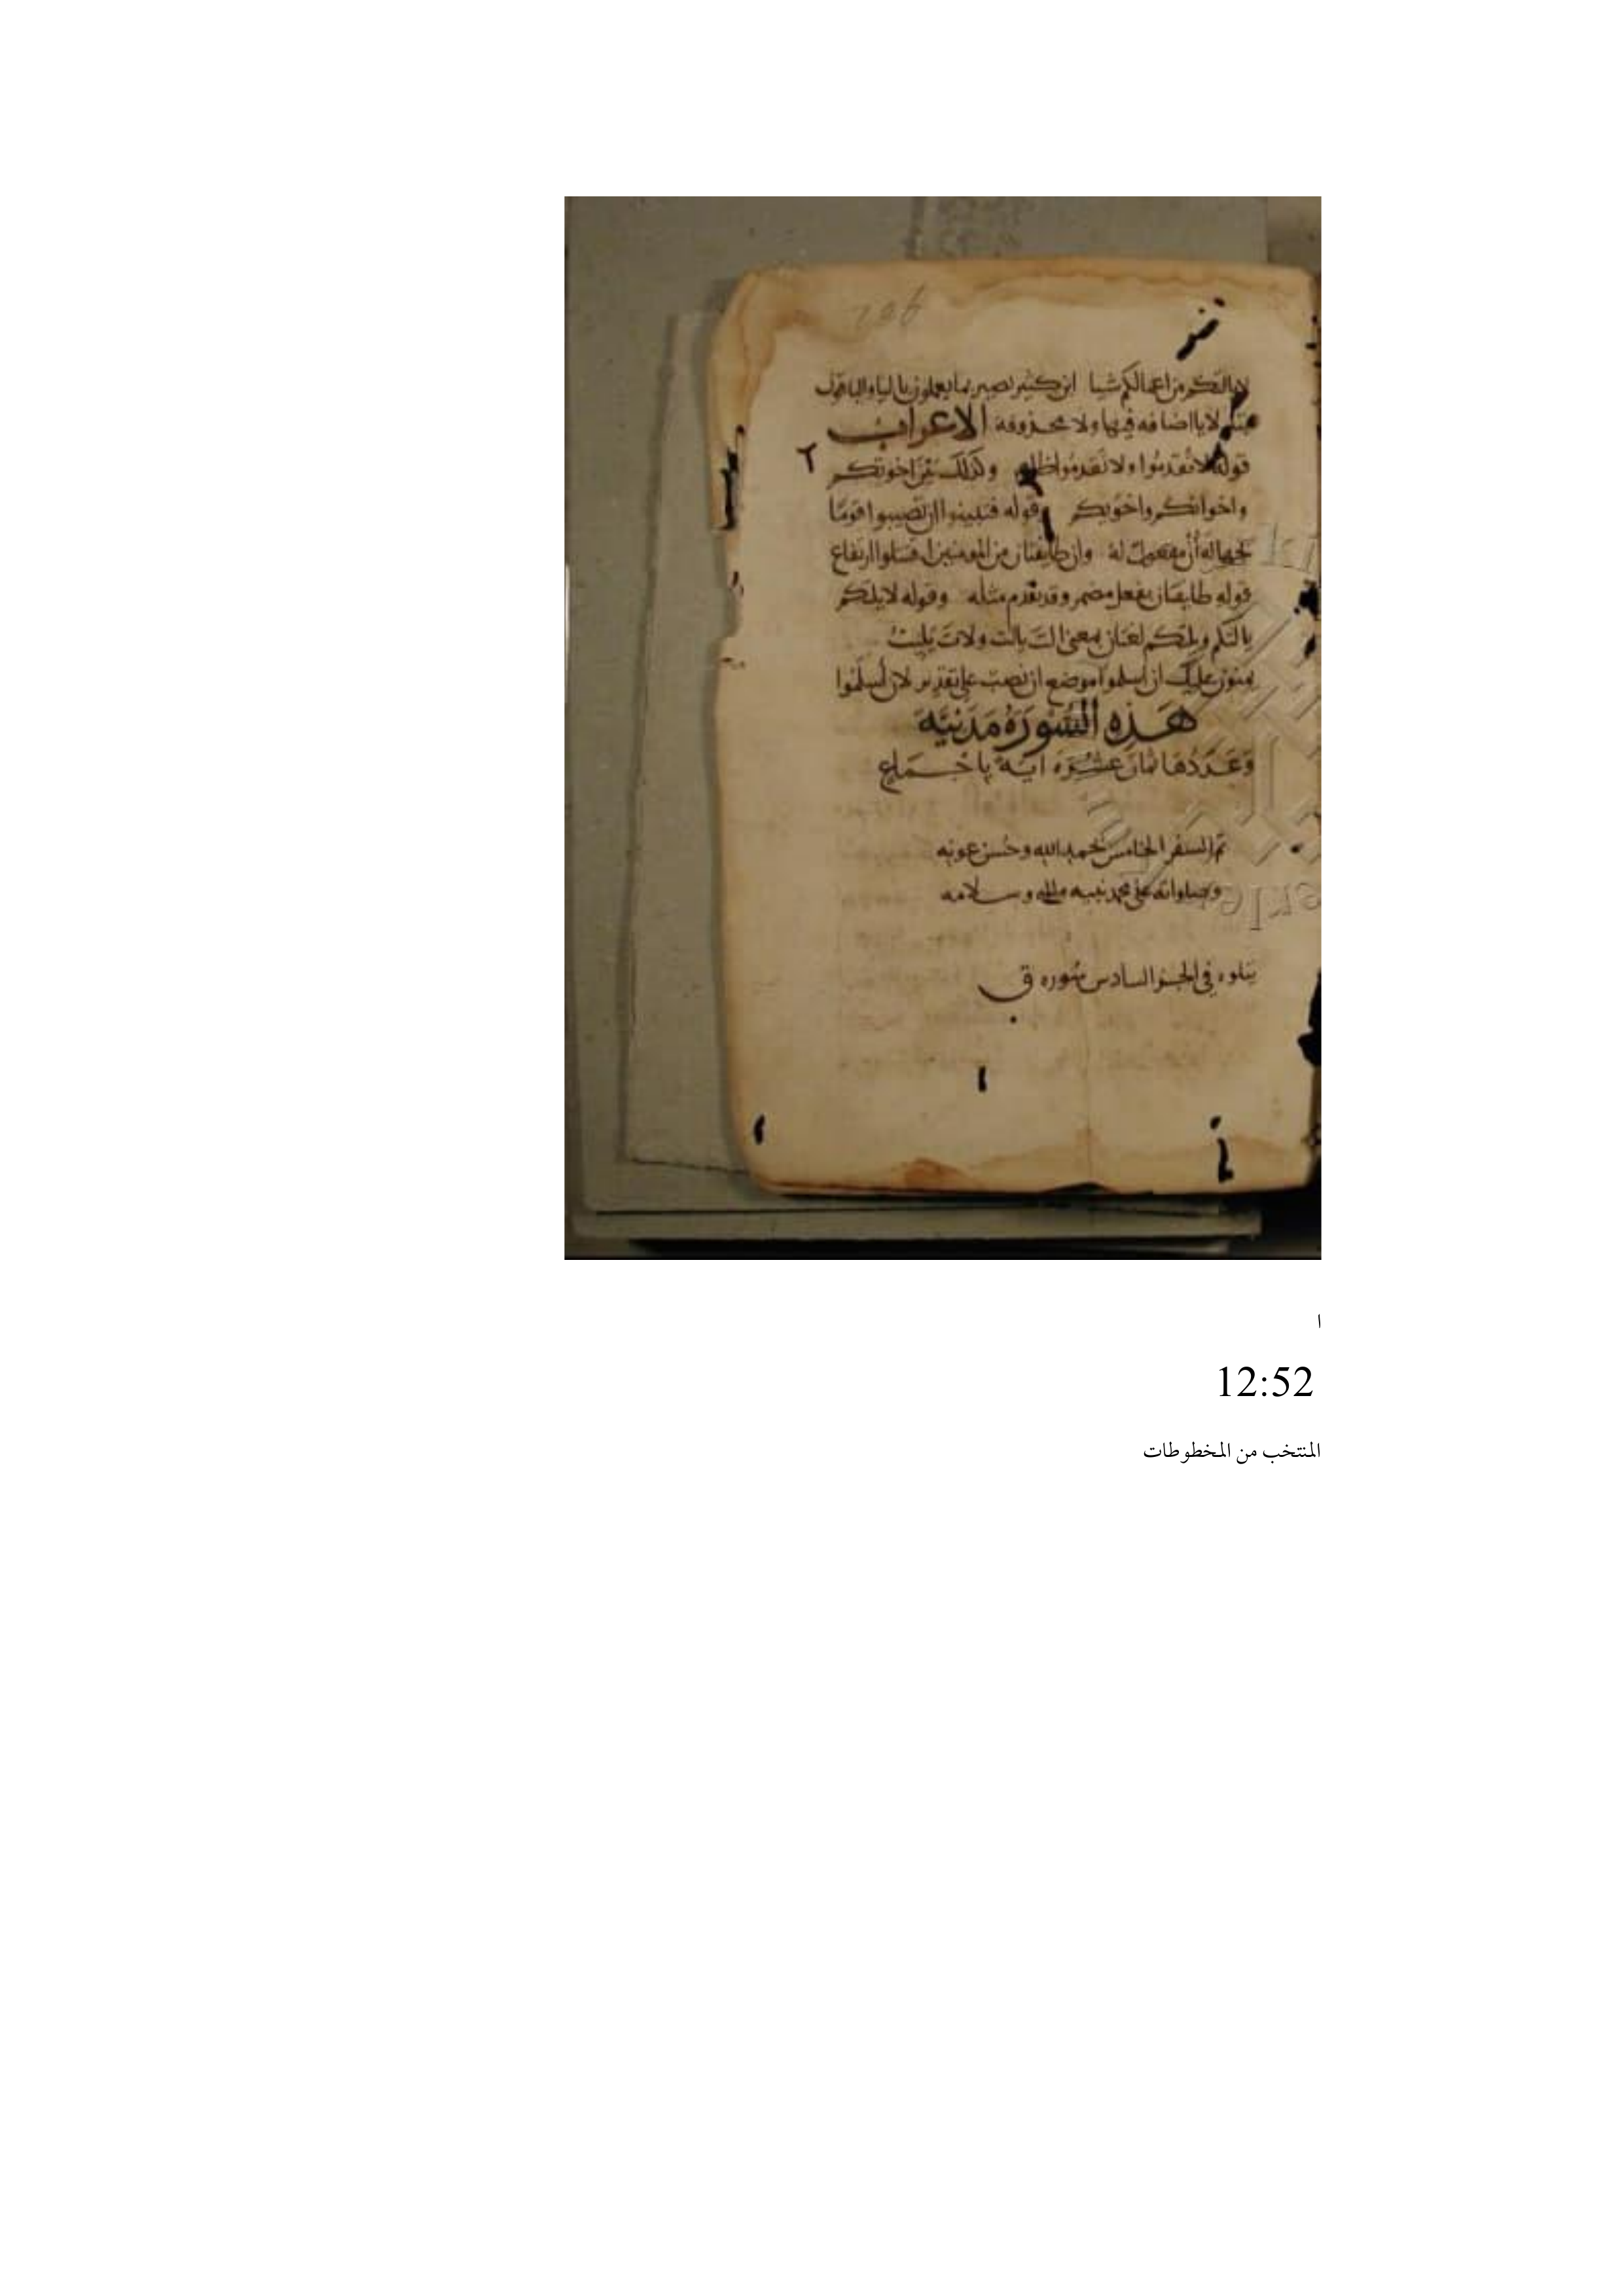 لا يالتكم من اعمالكم شيا ابن كثير بصير بما يعملون باليا والباقون
لا يا اضافه فيها ولا محذوفة الاعراب
قوله لا تُقدموا ولا تَقدموا وكذلك بين اخوتكم
واخوانكم واخويكم قوله فتبينوا ان تصيبوا قوما
بجهالة أن مفعول له وان طايفتان من المومنين اقتتلوا ارتفاع
قوله طايفتان بفعل مضمر وقد تقدم مثله وقوله لا يلتكم
يالتكم ويلتكم لغتان بمعنى الت يالت ولات يليت
يمنون عليك ان اسلموا موضع ان نصب على تقدير لان اسلموا
هَذِه السُّورَةُ مَدَنيَّة
وَعَدَدُهَا ثمان عَشْرَة ايَة بِاجْمَاع
تم السفر الخامس بحمد الله وحسن عونه
وصلواته على محمد نبيه وسلامه
يتلوه في الجز السادس سُوره ق
ا
12:52
المنتخب من المخطوطات